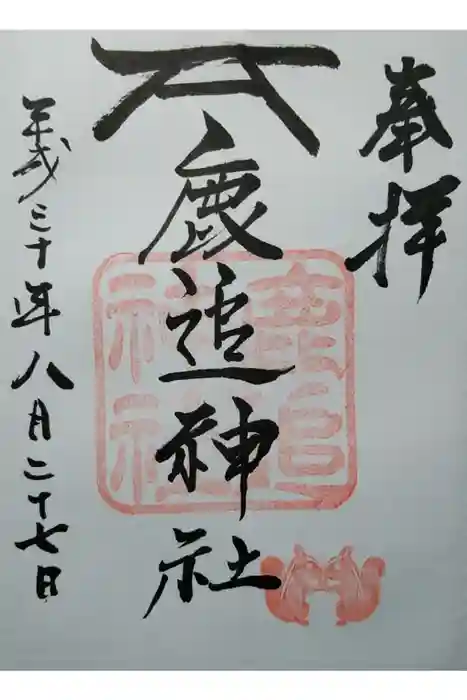 奉拝
鹿追神社
平成三十年八月二十七日
鹿追
神社